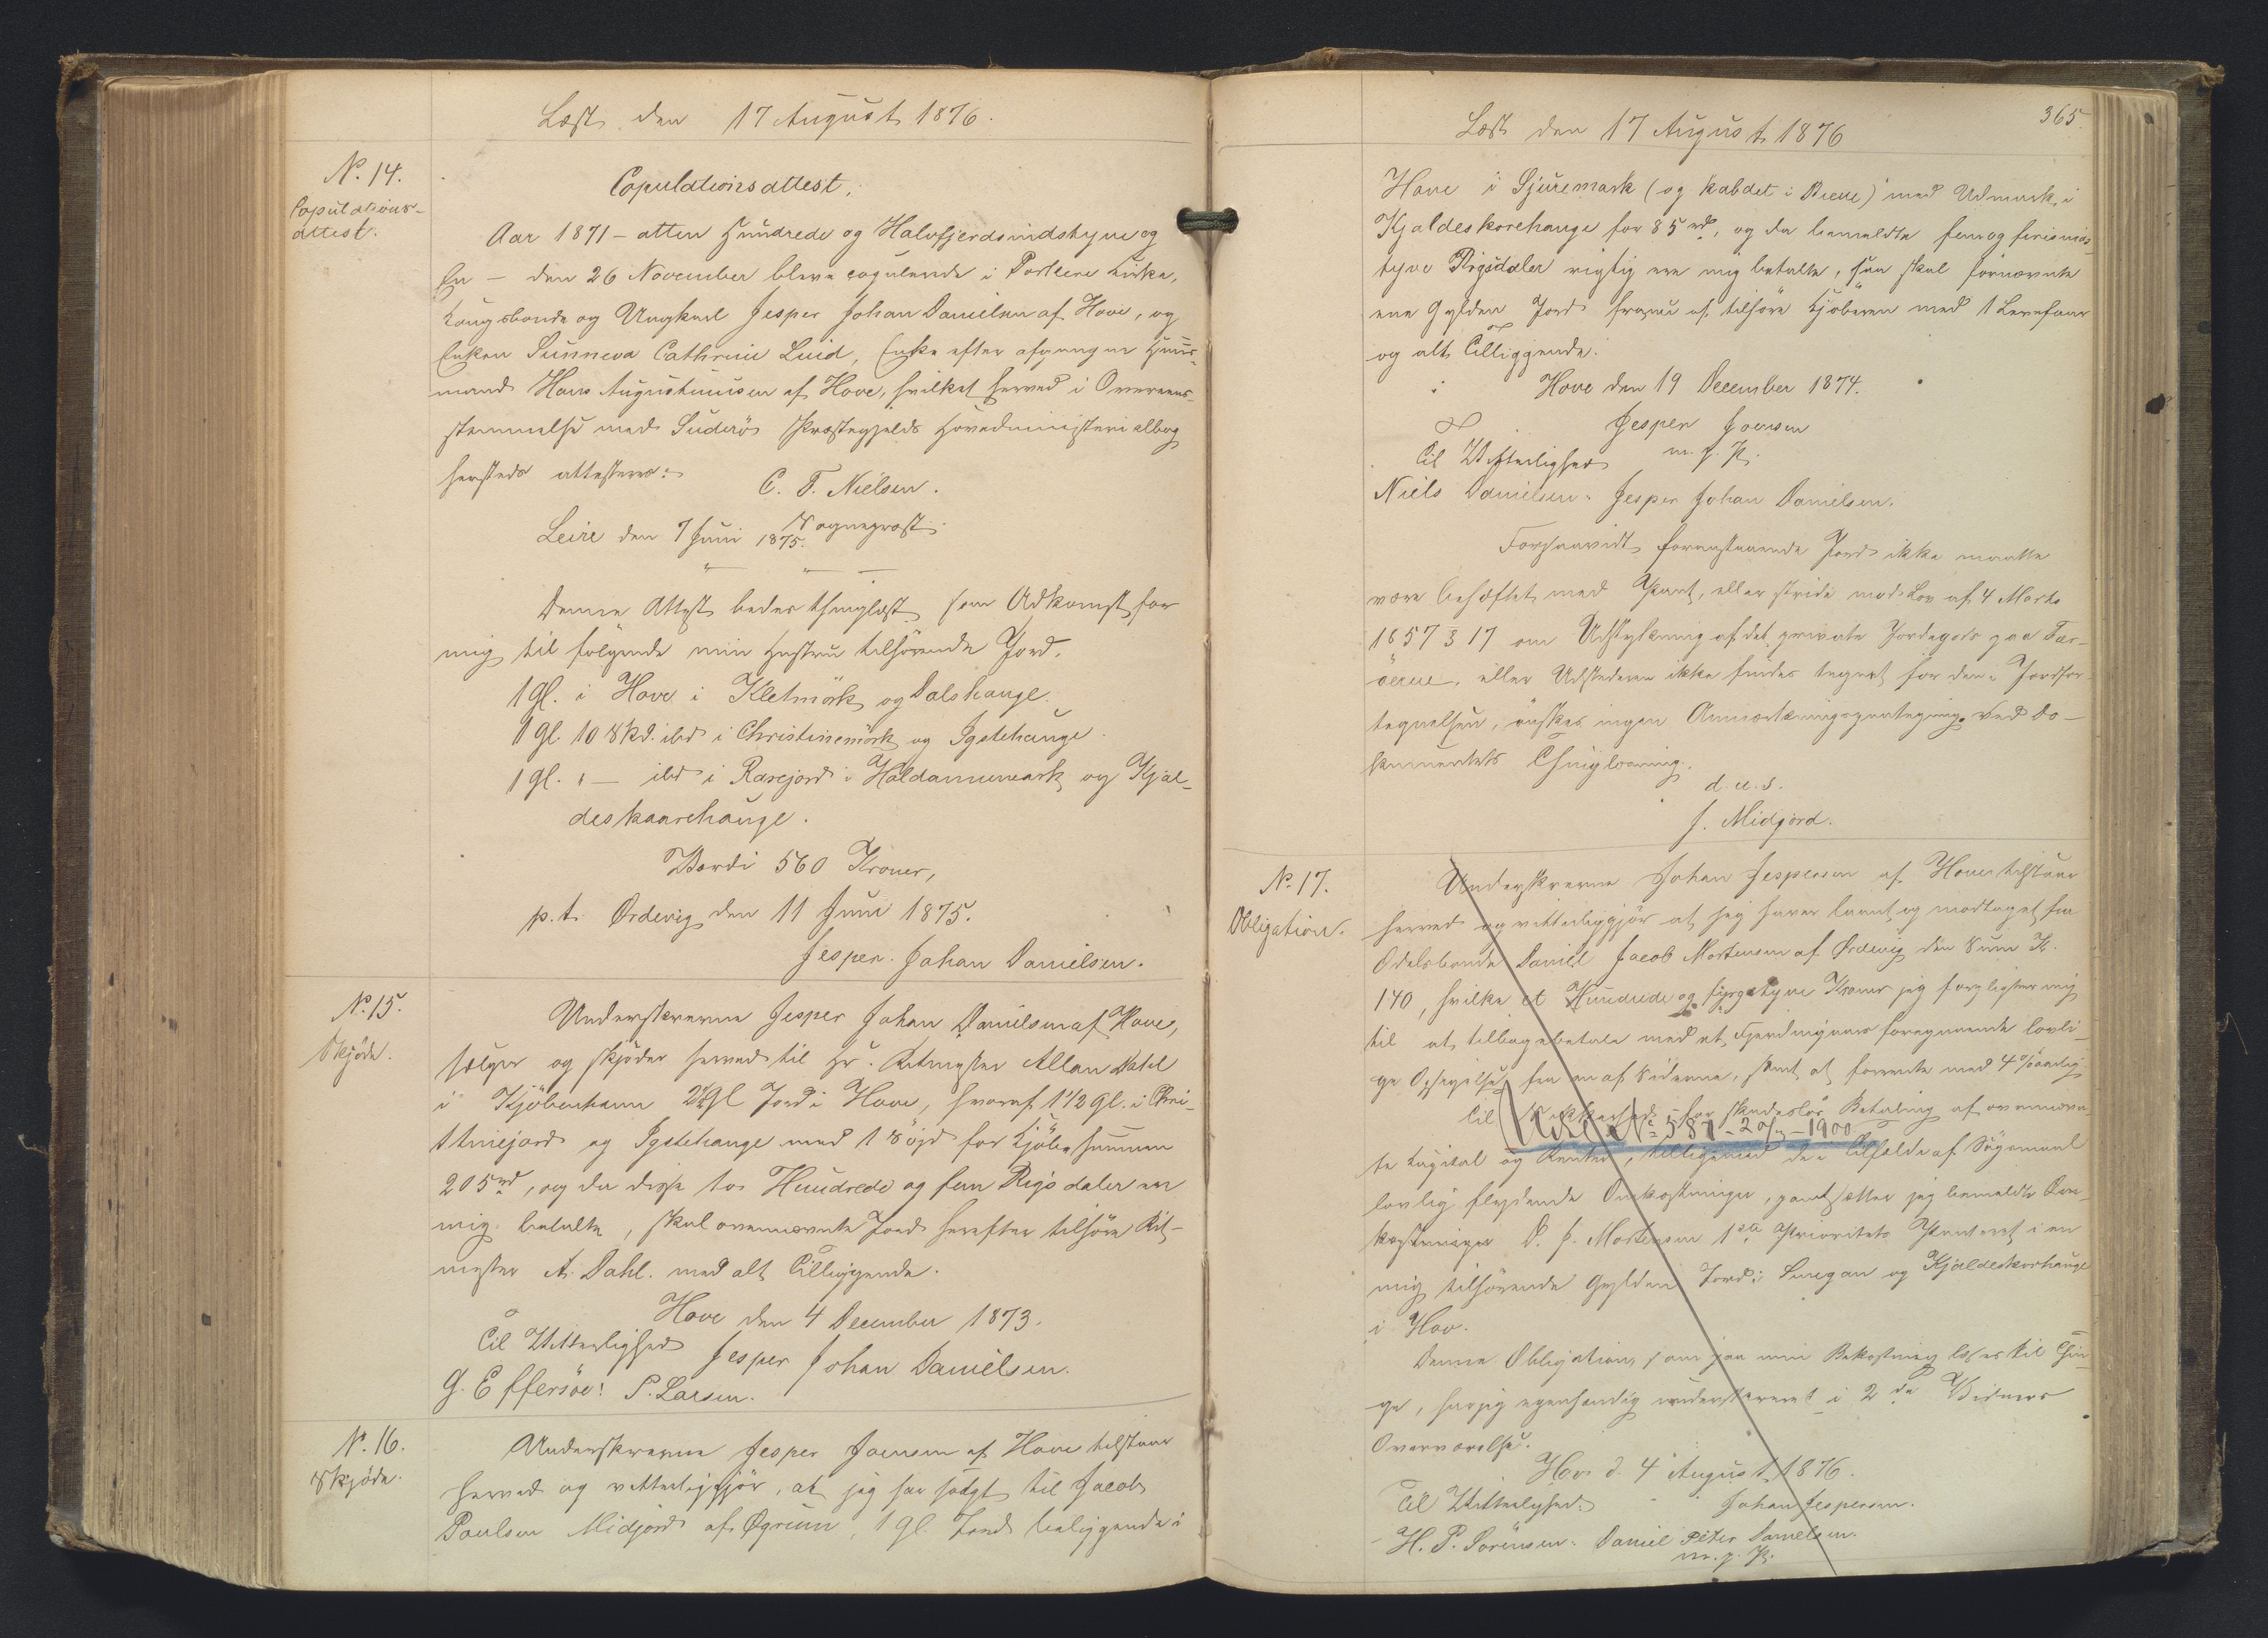 Læst den 17 August 1876.
No. 14.
Copulations-
attest.
Copulationsattest.
Aar 1871 – atten Hundrede og Halvfjerdsindstyve og
En – den 26 November bleve copulerede i Porkere Kirke,
Kongsbonde og Ungkarl Jesper Johan Danielsen af Hove, og
Enken Sunneva Cathrine Lüid, Enke efter afgangne Huus-
mand Hans Augustinusen af Hove, hvilket herved i Overeens-
stemmelse med Suderøs Præstegjelds Hovedministerialbog
hersteds attesteres.
C. T. Nielsen.
Sognepræst.
Leire den 7 Juni 1875.
Denne Attest bedes thinglæst som Adkomst for
mig til følgende min Hustru tilhørende Jord.
1 Gl. i Hove i Kletmørk og Dalshauge.
1 Gl. 10 Skd. ibd i Christinemørk og Igstehauge.
1 Gl. " – ibd i Rarejord i Haldammemark og Kjal-
deskaarehauge.
Værdi 560 Kroner,
p.t. Ørdevig den 11 Juni 1875.
Jesper Johan Danielsen.
No. 15.
Skjøde.
Underskrevne Jesper Johan Danielsen af Hove,
sælger og skjøder herved til Hr. Ritmester Allan Dahl
i Kjøbenhavn 2 Gl Jord i Hove, hvoraf 1 1/2 Gl. i Chri-
stinejord og Igstehauge med 1 Søjd for Kjøbesummen
205 rd, og da disse to Hundrede og fem Rigsdaler ere
mig betalte, skal ovennævnte Jord herefter tilhøre Rit-
mester A. Dahl. med alt Tilliggende.
Hove den 4 December 1873.
Til Vitterlighed
Jesper Johan Danielsen.
G. Effersøe. P. Larsen.
No. 16.
Skjøde.
Underskrevne Jesper Joensen af Hove tilstaar
herved og vitterliggjør, at jeg har solgt til Jacob
Poulsen Midjord af Øgrum, 1 Gl. Jord beliggende i
365.
Læst den 17 August 1876
Hove i Sjuremark (og kaldet i Breue) med Udmark i
Kjaldeskorehauge for 85 rd, og da bemeldte fem og firsinds-
tyve Rigsdaler rigtig ere mig betalte, saa skal fornævnte
ene Gylden Jord herefter tilhøre Kjøberen med 1
og alt Tilliggende.
Hove den 19 December 1874.
Jesper Joensen
m. f. P.
Til Vitterlighed
Niels Danielsen. Jesper Johan Danielsen.
Forsaavidt foranstaaende Jord ikke maatte
være behæftet med Pant, eller stride mod Lov af 4 Marts
1857 § 17 om Udstykning af det private Jordegods paa Fær-
øerne, eller Udstederen ikke findes tegnet for den i Jordfor-
tegnelsen, ønskes ingen Anmærkningspaategning ved Do-
kumentets Thinglæsning.
d. u. s.
J. Midjord.
No. 17.
Obligation.
Underskrevne Johan Jespersen af Hove tilstaar
herved og vitterliggjør at jeg haver laant og modtaget fra
Odelsbonde Daniel Jacob Mortensen af Ørdevig den Sum Kr.
140, hvilke et Hundrede og fyrgetyve Kroner jeg forpligter mig
til at tilbagebetale med et Fjerdingaars foregaaende lovli-
ge Opsigelse fra en af Siderne, samt at forrente med 4 % aarlig.
Til Sikkerhed for skadesløs Betaling af ovennævn-
Udsl. No. 587 – 20/3 – 1900
te Kapital og Renter, tilligemed de i Tilfælde af Søgsmaal
lovlig flydende Omkostninger, pantsætter jeg bemeldte Om-
kostninger D. J. Mortensen 1ste Prioritets Panteret i en
mig tilhørende Gylden Jord i Lnegan og Kjaldeskorhauge
i Hov.
Denne Obligation, som paa min Bekostning læses til Thin-
ge, har jeg egenhændig underskrevet i 2de Vidners
Overværelse.
Hov d. 4 August 1876.
Til Vitterlighed.
Johan Jespersen.
H. P. Sørensen. Daniel Peter Danielsen.
m. f. P.